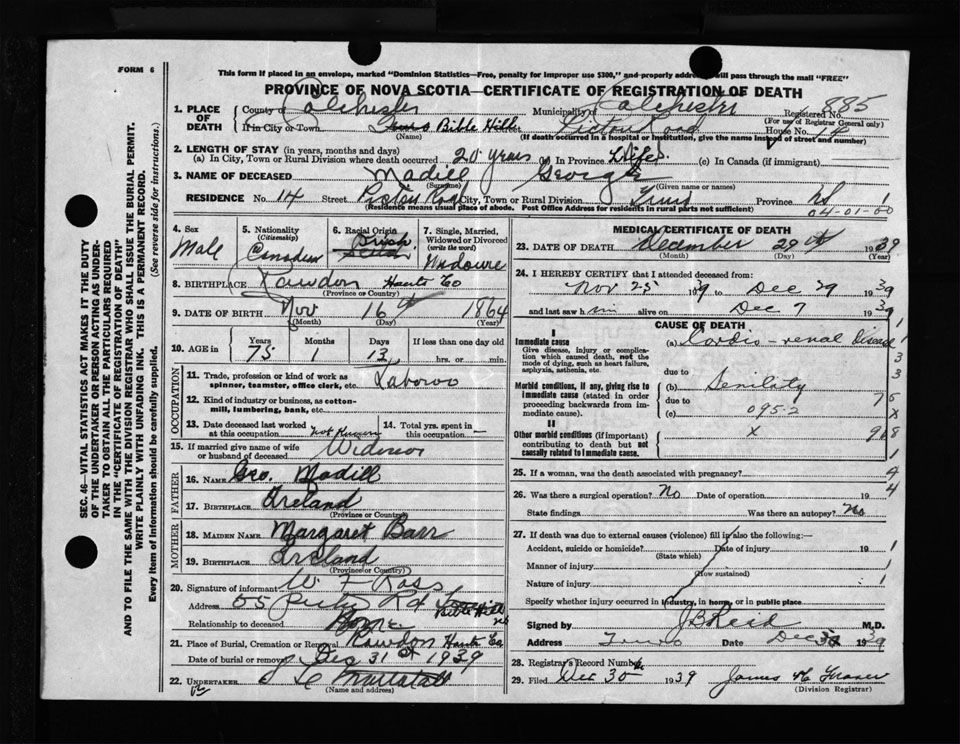 FORM 6
This form if placed in an envelope, marked "Dominion Statistics—Free, penalty for improper use $300," and properly addressed will pass through the mail "FREE"
PROVINCE OF NOVA SCOTIA—CERTIFICATE OF REGISTRATION OF DEATH
1. PLACE OF DEATH County of Colchester Municipality of Colchester Registered No. 885
(For use of Registrar General only)
If in City or Town Truro Bible Hill Street Pictou Road House No. 14
(Name) (If death occurred in a hospital or institution, give the name instead of street and number)
2. LENGTH OF STAY (in years, months and days)
(a) In City, Town or Rural Division where death occurred 20 years (b) in Province Life (c) In Canada (if immigrant)
3. NAME OF DECEASED Madill George
(Surname) (Given name or names)
RESIDENCE No. 14 Street Pictou Road City, Town or Rural Division Truro Province NS
(Residence means usual place of abode. Post Office Address for residents in rural parts not sufficient) 04-01-00
4. Sex Male
5. Nationality (Citizenship) Canadian
6. Racial Origin
7. Single, Married, Widowed or Divorced (write the word)
8. BIRTHPLACE Rawdon Hants Co
(Province or Country)
9. DATE OF BIRTH Nov 16th 1864
(Month) (Day) (Year)
10. AGE in Years 75 Months 1 Days 13 If less than one day hrs. or min.
OCCUPATION
11. Trade, profession or kind of work as spinner, teamster, office clerk, etc.
12. Kind of industry or business, as cotton-mill, lumbering, bank, etc.
13. Date deceased last worked at this occupation not known
14. Total yrs. spent in this occupation —
15. If married give name of wife or husband of deceased
FATHER
16. NAME Geo. Madill
17. BIRTHPLACE Ireland
(Province or Country)
MOTHER
18. MAIDEN NAME Margaret Barr
19. BIRTHPLACE Ireland
(Province or Country)
20. Signature of informant W F Ross
Address 55 Rd Bible Hill
Relationship to deceased None
21. Place of Burial, Cremation or Removal Rawdon Hants Co
Date of burial or removal Dec 31st 1939
22. UNDERTAKER
(Name and address)
MEDICAL CERTIFICATE OF DEATH
23. DATE OF DEATH December 29th 1939
(Month) (Day) (Year)
24. I HEREBY CERTIFY that I attended deceased from:
Nov 25 1939 to Dec 29 1939
and last saw him alive on Dec 7 1939
CAUSE OF DEATH
I
Immediate cause
Give disease, injury, or complication which caused death, not the mode of dying, such as heart failure, asphyxia, asthenia, etc.
(a) Cardio-renal disease
due to
Morbid conditions, if any, giving rise to immediate cause (stated in order proceeding backwards from immediate cause).
(b) Senility
due to
(c) 095-2
II
Other morbid conditions (if important) contributing to death but not causally related to immediate cause. x
25. If a woman, was the death associated with pregnancy?
26. Was there a surgical operation? No Date of operation 19
State findings Was there an autopsy? No
27. If death was due to external causes (violence) fill in also the following:—
Accident, suicide or homicide? Date of injury 19
(State which)
Manner of injury
(How sustained)
Nature of injury
Specify whether injury occurred in industry, in home, or in public place
Signed by J B Reid M.D.
Address Truro Date Dec 30 1939
28. Registrar's Record Number
29. Filed Dec 30 1939 James H Fraser
(Division Registrar)
SEC. 46—VITAL STATISTICS ACT MAKES IT THE DUTY OF THE UNDERTAKER OR PERSON ACTING AS UNDERTAKER TO OBTAIN ALL THE PARTICULARS REQUIRED IN THE "CERTIFICATE OF REGISTRATION OF DEATH" AND TO FILE THE SAME WITH THE DIVISION REGISTRAR WHO SHALL ISSUE THE BURIAL PERMIT.
WRITE PLAINLY WITH UNFADING INK. THIS IS A PERMANENT RECORD.
Every item of information should be carefully supplied. (See reverse side for instructions.)